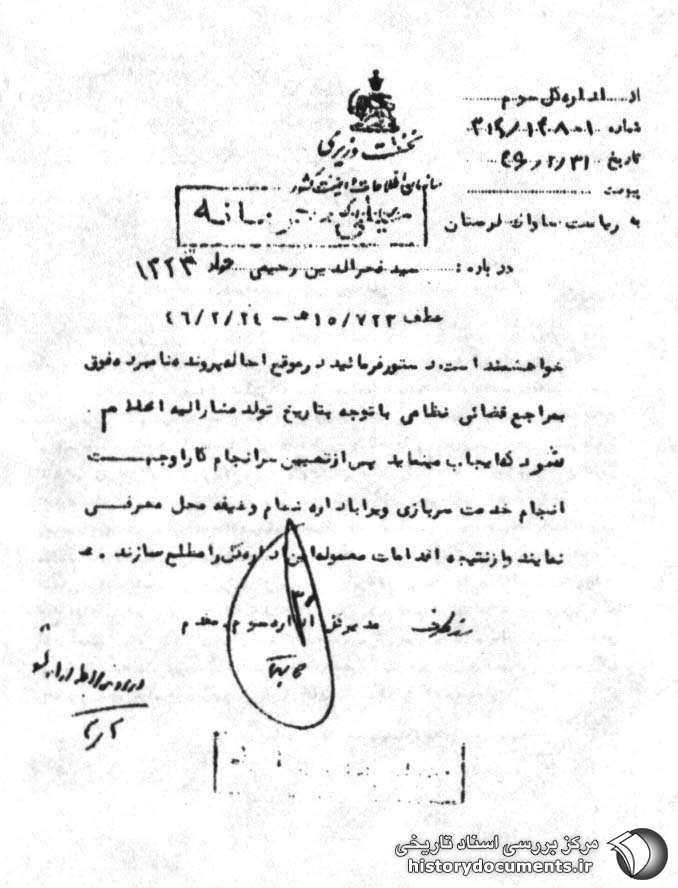 از اداره کل سوم
شماره ۳۱۲/۱۲۰۸۰۱
تاریخ ۴۶/۲/۳۱
پیوست
نخست وزیری
سازمان اطلاعات و امنیت کشور
به ریاست ساواک لرستان
درباره : سید فخرالدین رحیمی متولد ۱۳۲۳
عطف ۱۵/۷۲۳ هـ – ۴۶/۲/۲۴
خواهشمند است دستور فرمائید در موقع احاله پرونده نامبرده فوق
بمراجع قضائی نظامی با توجه بتاریخ تولد مشارالیه اعلام
شود که ایجاب مینماید پس از تعیین سرانجام کار او جهت
انجام خدمت سربازی ویرا باداره نظام وظیفه محل معرفی
نمایند و از نتیجه اقدامات معموله این اداره کل را مطلع سازند .
مدیر کل اداره سوم . مقدم
مرکز بررسی اسناد تاریخی
historydocuments.ir